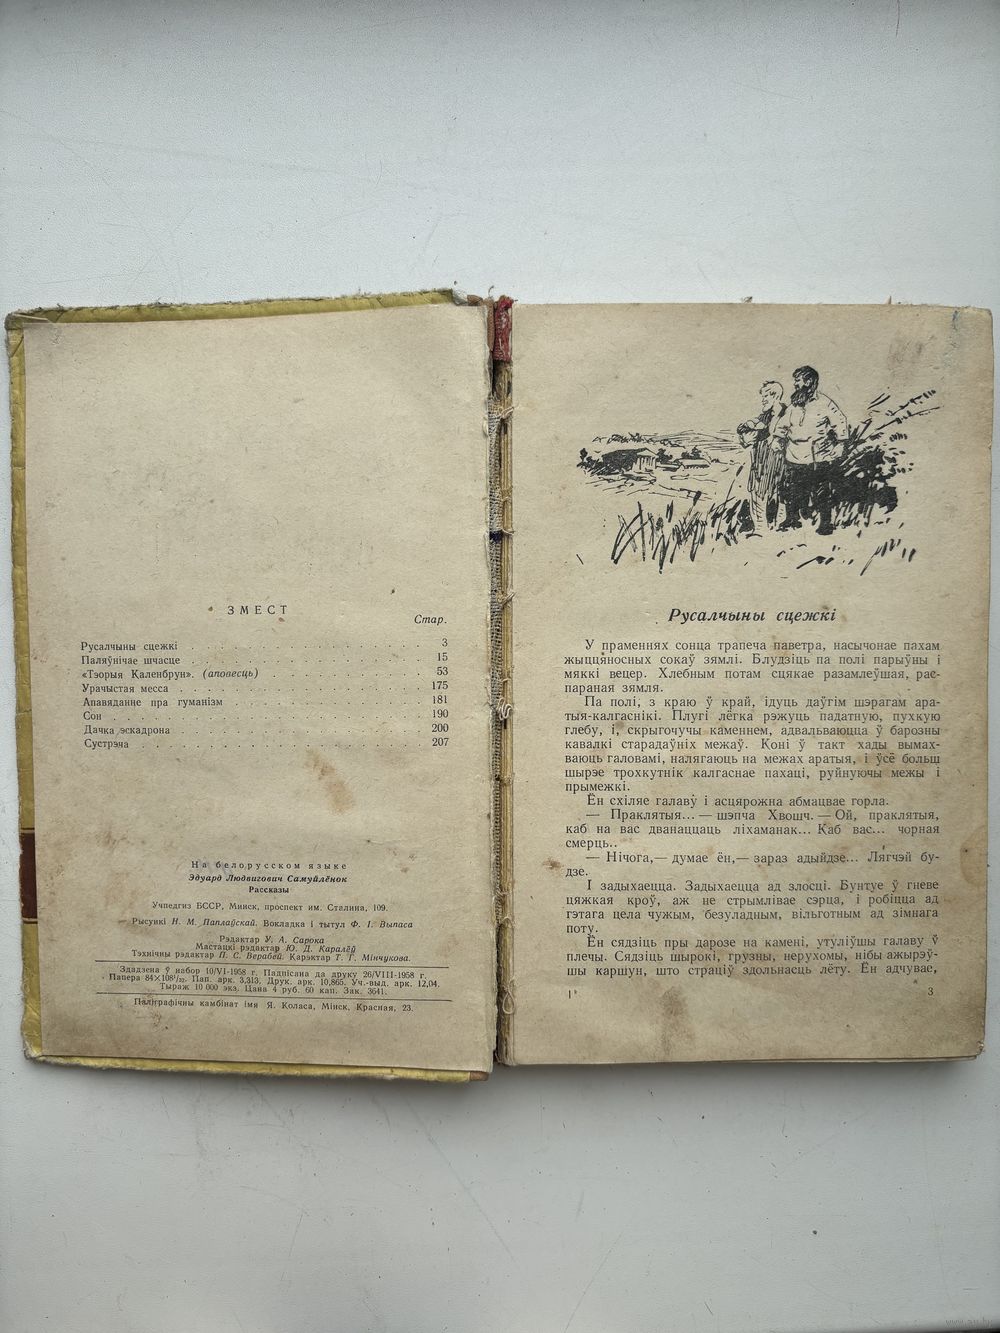 ЗМЕСТ
Стар.
Русалчыны сцежкі . . . . . . . . . . 3
Паляўнічае шчасце . . . . . . . . . . 15
«Тэорыя Каленбрун». (аповесць) . . . . . . . . . . 53
Урачыстая месса . . . . . . . . . . 175
Апавяданне пра гуманізм . . . . . . . . . . 181
Сон . . . . . . . . . . 190
Дачка эскадрона . . . . . . . . . . 200
Сустрэча . . . . . . . . . . 207
На белорусском языке
Эдуард Людвигович Самуйлёнок
Рассказы
Учпедгиз БССР, Минск, проспект им. Сталина, 109.
Рысункі Н. М. Паплаўскай. Вокладка і тытул Ф. І. Выпаса
Рэдактар У. А. Сарока
Мастацкі рэдактар Ю. Д. Каралёў
Тэхнічны рэдактар П. С. Верабей. Карэктар Т. Г. Мінчукова.
Здадзена ў набор 10/VI-1958 г. Падпісана да друку 26/VIII-1958 г.
Папера 84×108¹/₃₂. Пап. арк. 3,313. Друк. арк. 10,865. Уч.-выд. арк. 12,04.
Тыраж 10 000 экз. Цана 4 руб. 60 кап. Зак. 3641.
Паліграфічны камбінат імя Я. Коласа, Мінск, Красная, 23.
Русалчыны сцежкі
У праменнях сонца трапеча паветра, насычонае пахам
жыццяносных сокаў зямлі. Блудзіць па полі парыўны і
мяккі вецер. Хлебным потам сцякае разамлеўшая, рас-
параная зямля.
Па полі, з краю ў край, ідуць даўгім шэрагам ара-
тыя-калгаснікі. Плугі лёгка рэжуць падатную, пухкую
глебу, і, скрыгочучы каменнем, адвальваюцца ў барозны
кавалкі старадаўніх межаў. Коні ў такт хады вымах-
ваюць галовамі, налягаюць на межах аратыя, і ўсё больш
шырэе трохкутнік калгаснае пахаці, руйнуючы межы і
прымежкі.
Ён схіляе галаву і асцярожна абмацвае горла.
— Праклятыя... — шэпча Хвошч. — Ой, праклятыя,
каб на вас дванаццаць ліхаманак... Каб вас... чорная
смерць..
— Нічога,— думае ён,— зараз адыйдзе... Лягчэй бу-
дзе.
І задыхаецца. Задыхаецца ад злосці. Бунтуе ў гневе
цяжкая кроў, аж не стрымлівае сэрца, і робіцца ад
гэтага цела чужым, безуладным, вільготным ад зімнага
поту.
Ён сядзіць пры дарозе на камені, утуліўшы галаву ў
плечы. Сядзіць шырокі, грузны, нерухомы, нібы ажырэў-
шы каршун, што страціў здольнасць лёту. Ён адчувае,
1*
3